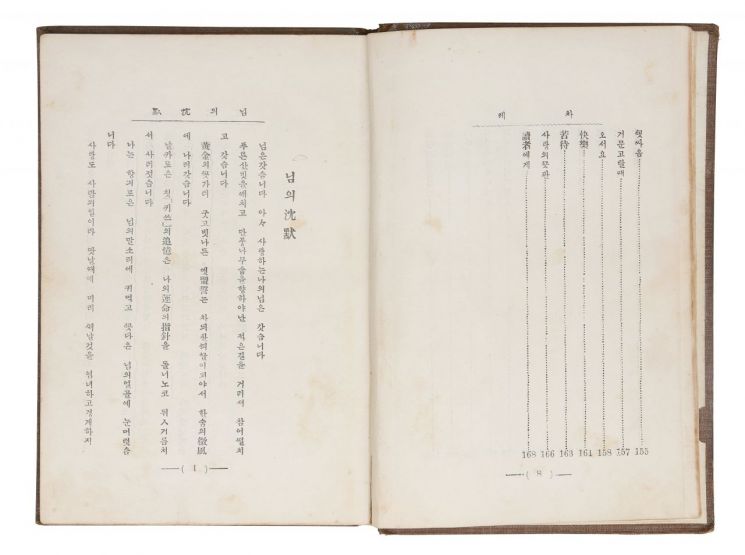 차례
ᄭᅩᆺ싸움 155
거문고탈ᄯᅢ 157
오서요 158
快樂 161
苦待 163
사랑의ᄭᅳᆺ판 166
讀者에게 168
( 8 )
님의沈默
님의沈默
님은갓슴니다 아々 사랑하는나의님은 갓슴니다
푸른산빗을ᄭᅢ치고 단풍나무숩을향하야난 적은길을 거러서 참어ᄯᅥᆯ치
고 갓슴니다
黃金의ᄭᅩᆺ가티 굿고빗나든 옛盟誓는 차듸찬ᄯᅴᄭᅳᆯ이되야서 한숨의微風
에 나러갓슴니다
날카로은 첫「키쓰」의追憶은 나의運命의指針을 돌너노코 뒤ㅅ거름처
서 사러젓슴니다
나는 향긔로은 님의말소리에 귀먹고 ᄭᅩᆺ다은 님의얼골에 눈머럿슴
니다
사랑도 사람의일이라 맛날ᄯᅢ에 미리 ᄯᅥ날것을 염녀하고경계하지
( 1 )